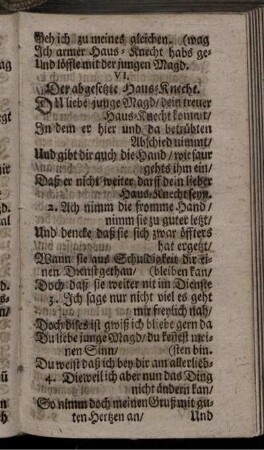 Geh ich zu meines gleichen. (wag
Ich armer Haus-Knecht habs ge-
Und löffle mit der jungen Magd.
VI.
Der abgesetzte Haus-Knecht.
DU liebe junge Magd/ dein treuer
Haus-Knecht kommt/
In dem er hier und da betrübten
Abschied nimmt/
Und gibt dir auch die Hand/ wie saur
gehts ihm ein/
Daß er nicht weiter darff dein lieber
Haus-Knecht seyn.
2. Ach nimm die fromme Hand/
nimm sie zu guter letzt/
Und dencke daß sie sich zwar öffters
hat ergetzt/
Wann sie aus Schuldigkeit dir ei-
nen Dienst gethan/ (bleiben kan/
Doch daß sie weiter nit im Dienste
3. Ich sage nur nicht viel es geht
mir freylich nah/
Doch dises ist gwiß ich bliebe gern da
Du liebe junge Magd/ du kennest mei-
nen Sinn/ (sten bin.
Du weist daß ich bey dir am allerlieb-
4. Dieweil ich aber nun das Ding
nicht ändern kan/
So nimm doch meinen Gruß mit gu-
ten Hertzen an/ Und